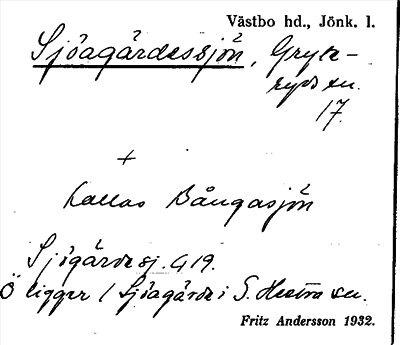 Västbo hd., Jönk. l.
Sjöagärdessjön, Gryte-
ryds sn.
17.
+
kallas Bångasjön
Sjögärdesj. G19.
Ö ligger / Sjöagärde i S. Hestra sn.
Fritz Andersson 1932.